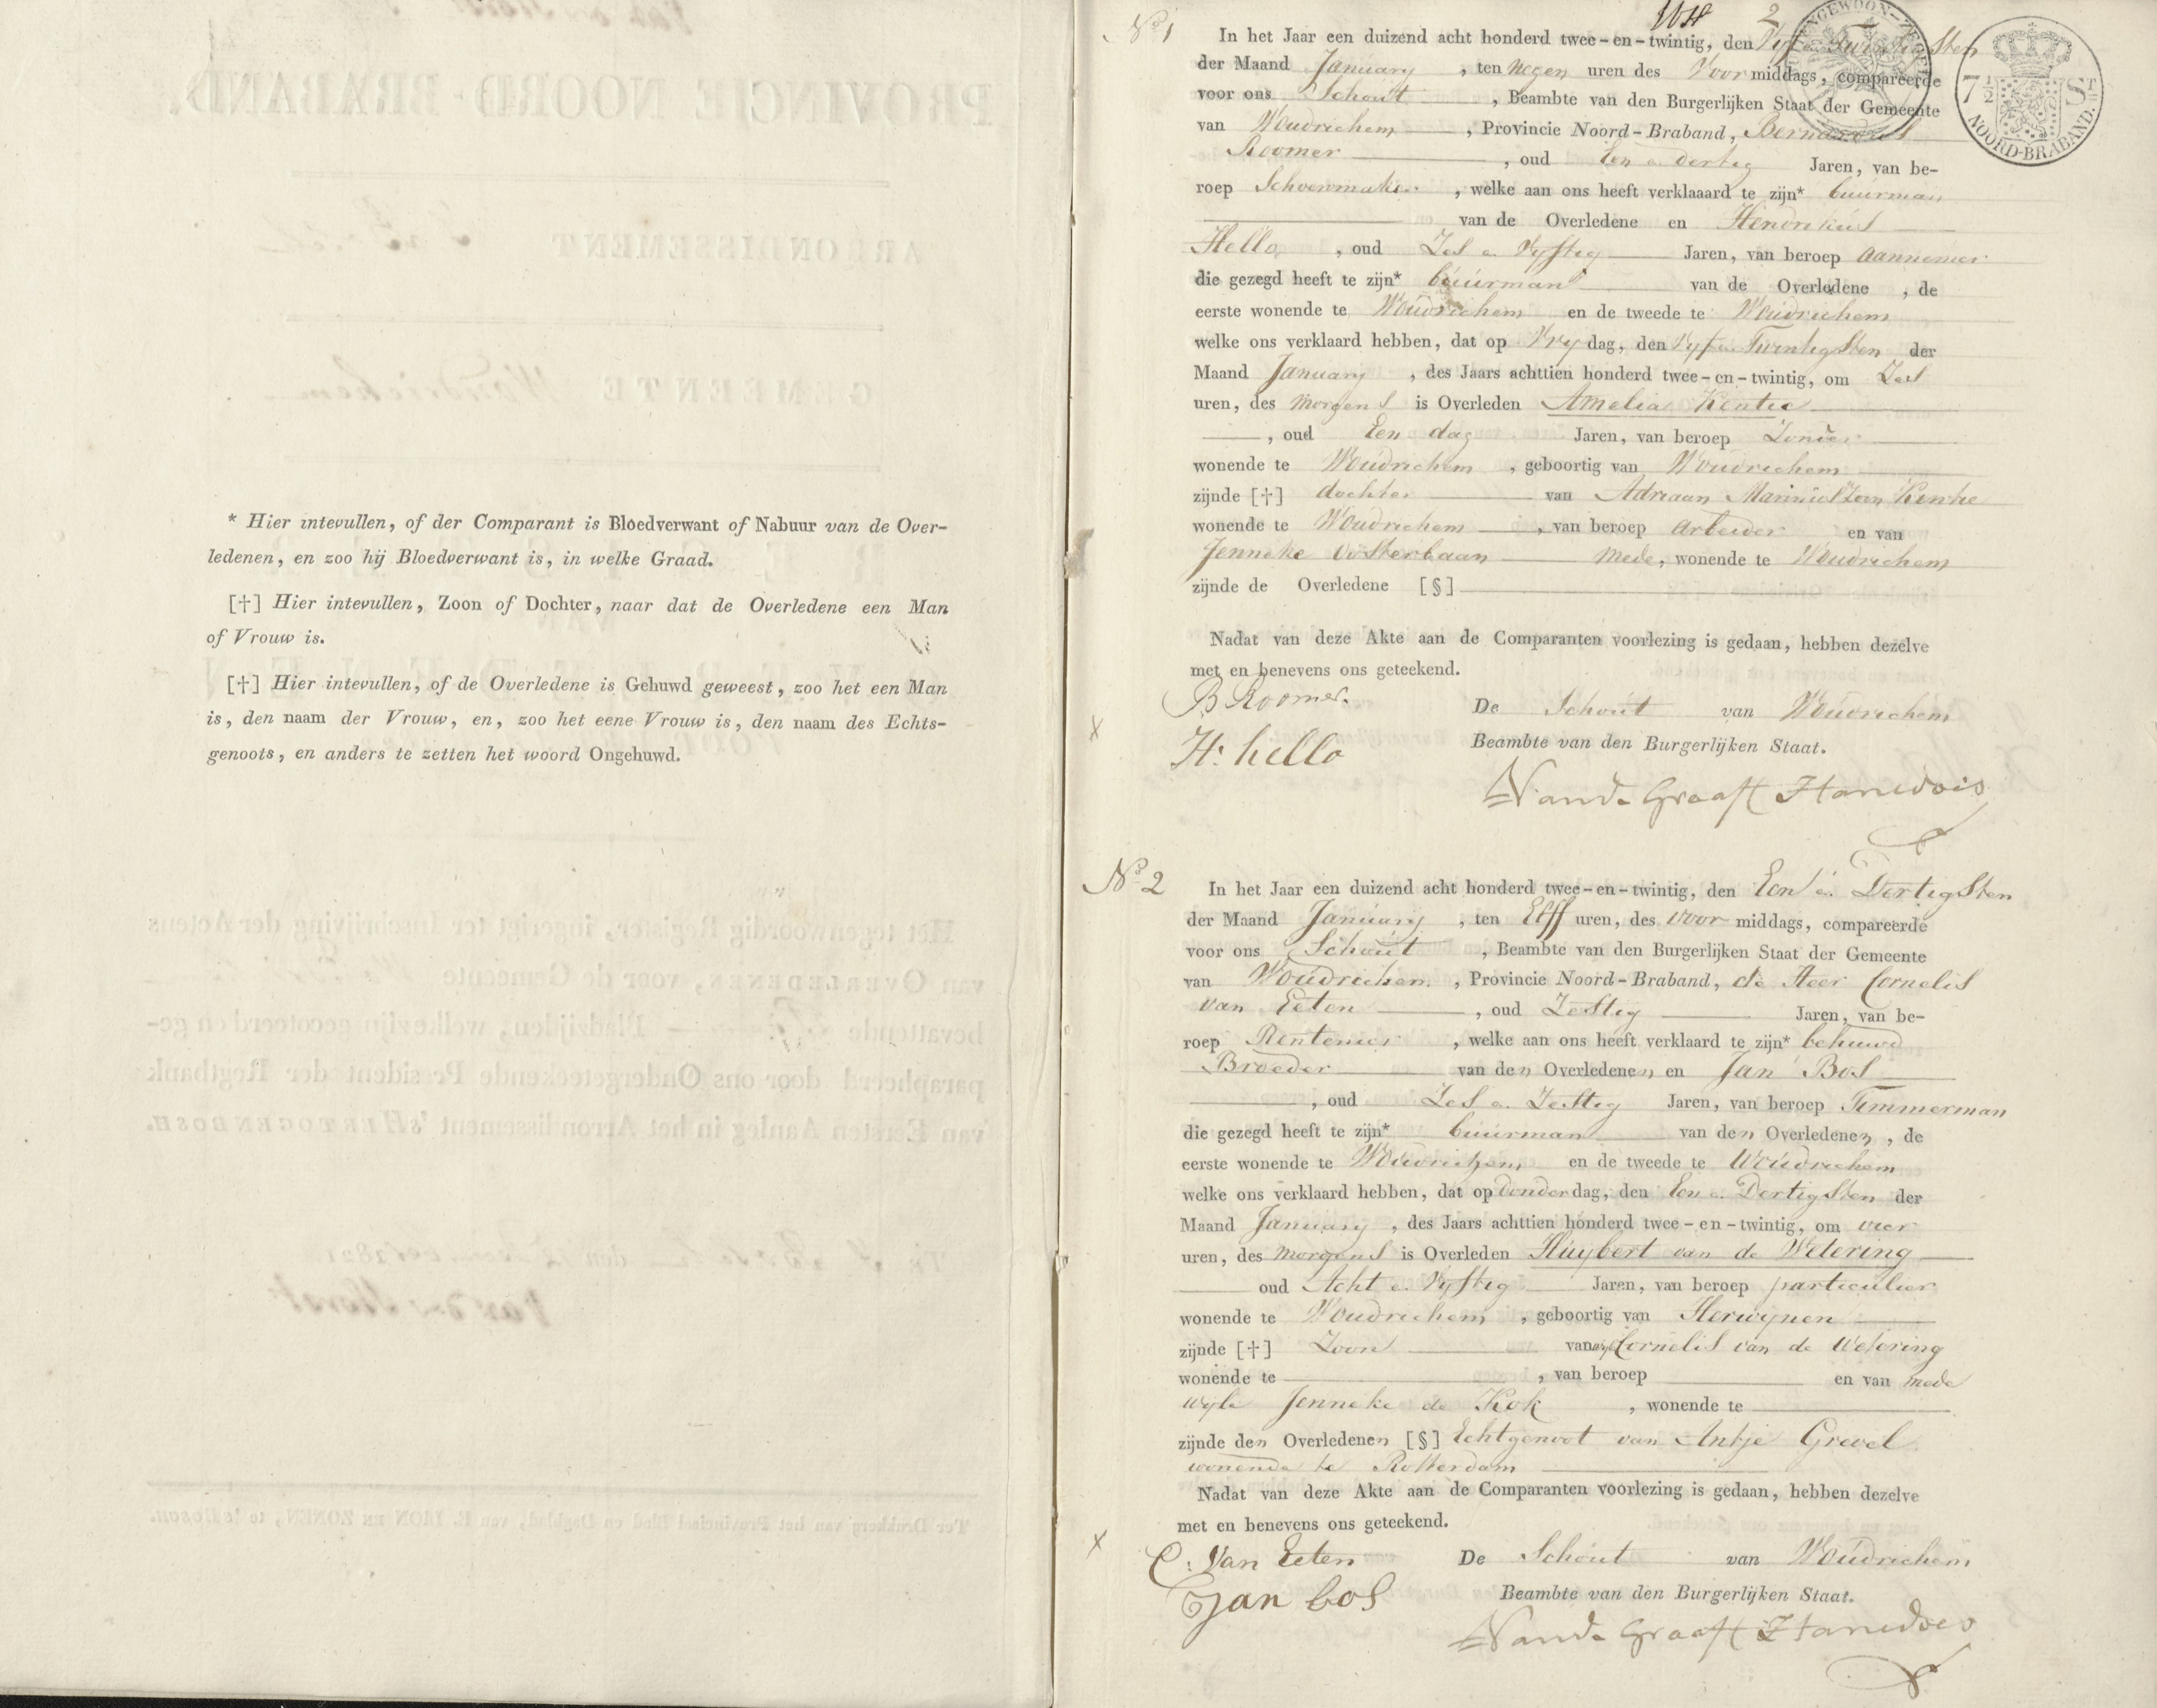 * Hier intevullen, of der Comparant is Bloedverwant of Nabuur van de Over-
ledenen, en zoo hij Bloedverwant is, in welke Graad.
[†] Hier intevullen, Zoon of Dochter, naar dat de Overledene een Man
of Vrouw is.
[†] Hier intevullen, of de Overledene is Gehuwd geweest, zoo het een Man
is, den naam der Vrouw, en, zoo het eene Vrouw is, den naam des Echts-
genoots, en anders te zetten het woord Ongehuwd.
2
7 1/2 ST
NOORD-BRABAND.
No 1
In het Jaar een duizend acht honderd twee-en-twintig, den Vyf en Twintigsten
der Maand January, ten negen uren des Voor middags, compareerde
voor ons Schout, Beambte van den Burgerlijken Staat der Gemeente
van Woudrichem, Provincie Noord-Braband, Bernardus
Roomer, oud Een en dertig Jaren, van be-
roep Schoenmaker, welke aan ons heeft verklaaard te zijn* buurman
van de Overledene en Hendrikus
Hello, oud Zes en Vyftig Jaren, van beroep aannemer
die gezegd heeft te zijn* buurman van de Overledene, de
eerste wonende te Woudrichem en de tweede te Woudrichem
welke ons verklaard hebben, dat op Vrydag, den Vyf en Twintigsten der
Maand January, des Jaars achttien honderd twee-en-twintig, om Zes
uren, des morgens is Overleden Amelia Kentie
, oud Een dag Jaren, van beroep Zonder
wonende te Woudrichem, geboortig van Woudrichem
zijnde [†] dochter van Adriaan Marinus Zoon Kentie
wonende te Woudrichem, van beroep arbeider en van
Jenneke Oosterbaan mede, wonende te Woudrichem
zijnde de Overledene [§]
Nadat van deze Akte aan de Comparanten voorlezing is gedaan, hebben dezelve
met en benevens ons geteekend.
B Roomer.
De Schout van Woudrichem
H. hello
Beambte van den Burgerlijken Staat.
Vand. Graaff Hanedoes
No 2
In het Jaar een duizend acht honderd twee-en-twintig, den Een en Dertigsten
der Maand January, ten Elff uren, des voor middags, compareerde
voor ons Schout, Beambte van den Burgerlijken Staat der Gemeente
van Woudrichem, Provincie Noord-Braband, de Heer Cornelis
van Eeten, oud Zestig Jaren, van be-
roep Rentenier, welke aan ons heeft verklaard te zijn* behuwd
Broeder van den Overledenen en Jan Bos
, oud Zes en Zestig Jaren, van beroep Timmerman
die gezegd heeft te zijn* buurman van den Overledenen, de
eerste wonende te Woudrichem en de tweede te Woudrichem
welke ons verklaard hebben, dat op donderdag, den Een en Dertigsten der
Maand January, des Jaars achttien honderd twee-en-twintig, om vier
uren, des morgens is Overleden Huybert van de Wetering
oud Acht en Vyftig Jaren, van beroep particulier
wonende te Woudrichem, geboortig van Herwynen
zijnde [†] Zoon van wyle Cornelis van de Wetering
wonende te, van beroep en van mede
wyle Jenneke de Kok, wonende te
zijnde den Overledenen [§] Echtgenoot van Antje Grevel
wonende te Rotterdam
Nadat van deze Akte aan de Comparanten voorlezing is gedaan, hebben dezelve
met en benevens ons geteekend.
C. Van Eeten
De Schout van Woudrichem
Jan bos
Beambte van den Burgerlijken Staat.
Vand. Graaff Hanedoes